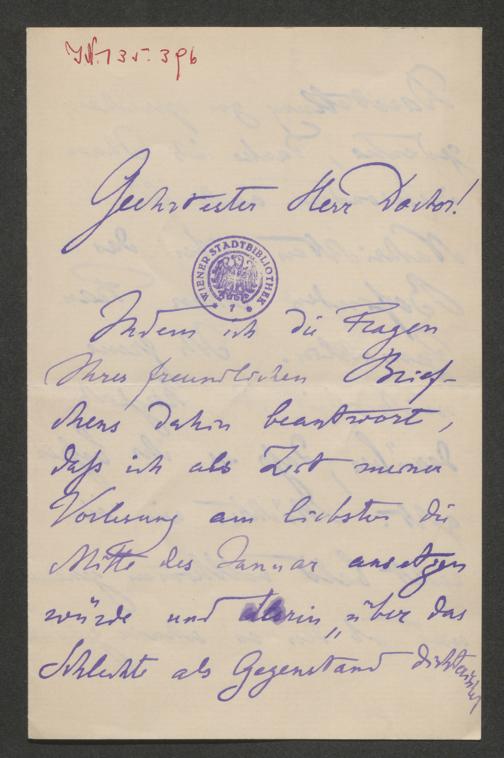 JN. 135.396
Geehrtester Herr Doctor!
WIENER STADTBIBLIOTHEK
1
Indem ich die Fragen
Ihres freundlichen Brief-
chens dahin beantwort,
daß ich als Zeit meiner
Vorlesung am liebsten die
Mitte des Januar ansetzen
würde und darin „über das
Schlechte als Gegenstand dichterischer